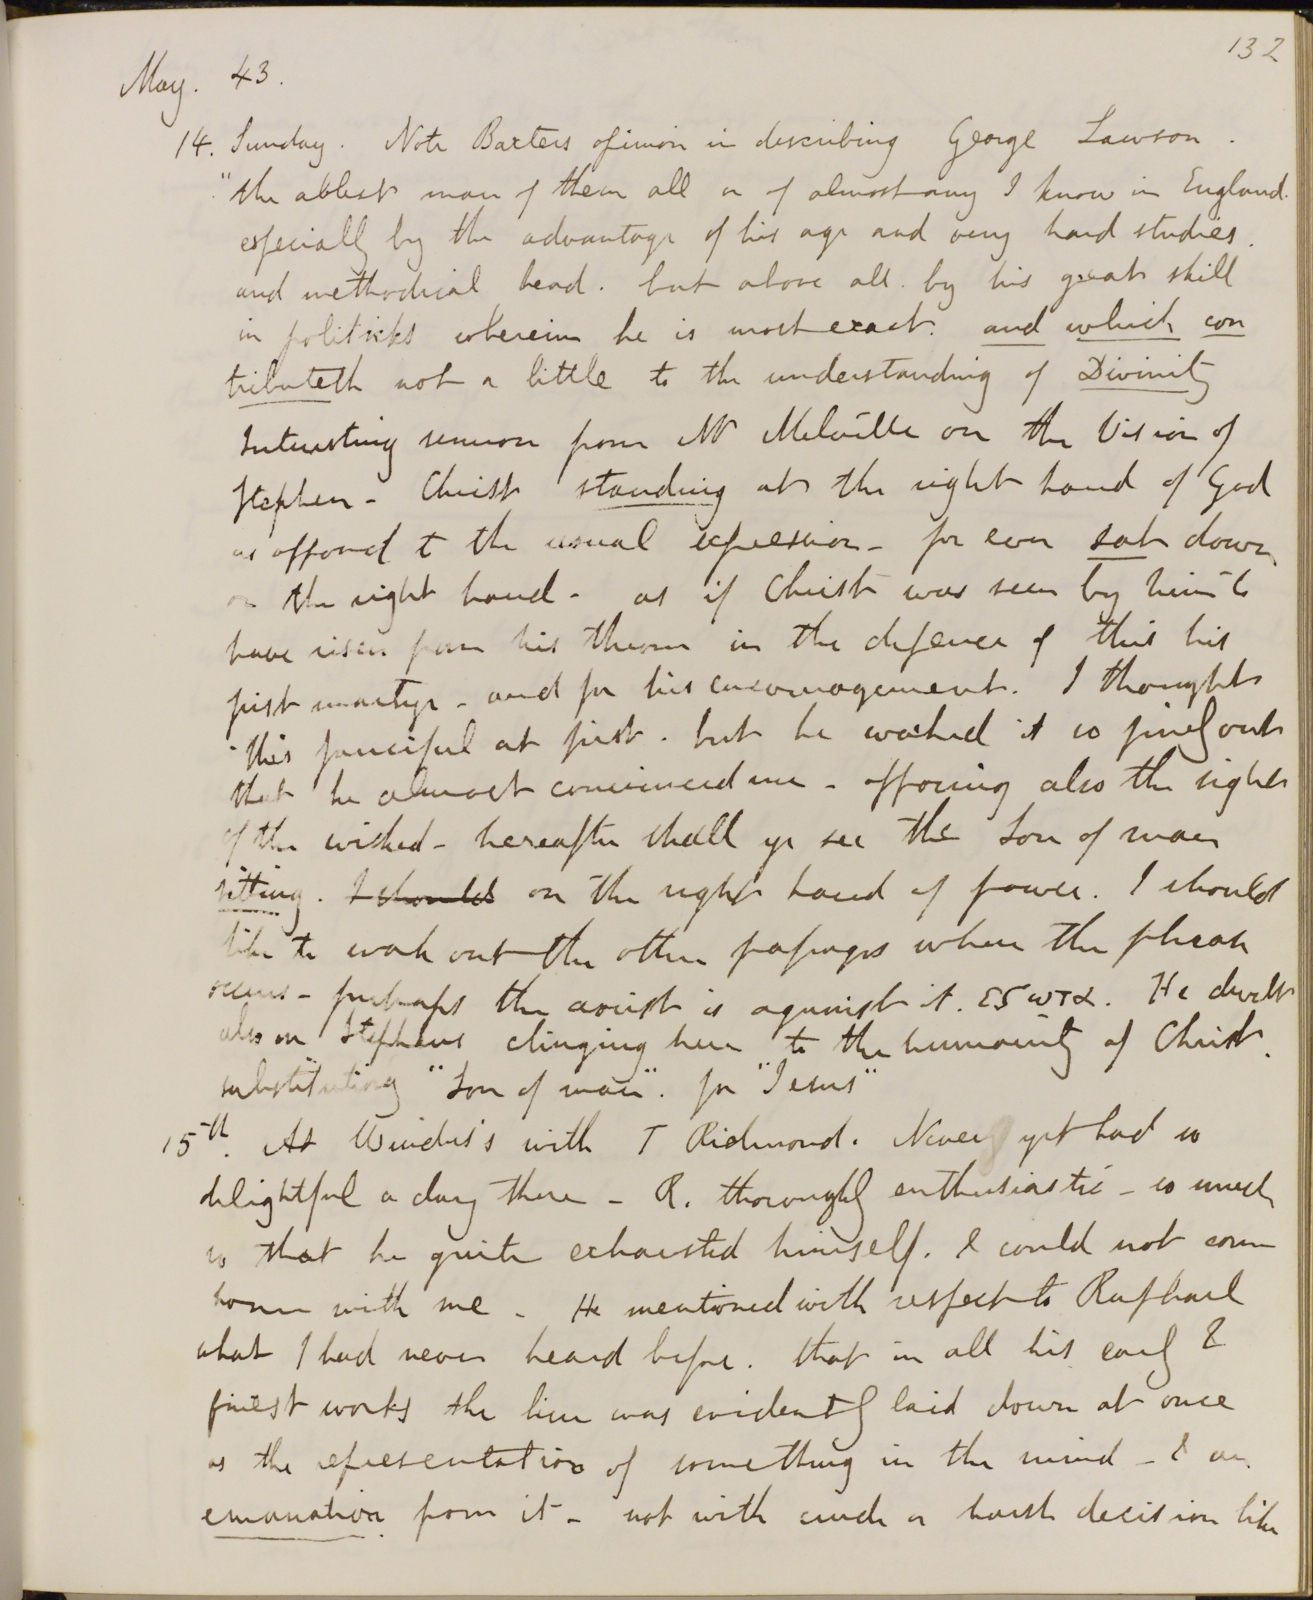 132
May. 43.
14. Sunday. Note Baxters opinion in describing George Lawson.
"the ablest man of them all or of almost any I know in England.
especially by the advantage of his age and very hard studies.
and methodical head. but above all. by his great skill
in politicks wherein he is most exact. and which con
tributeth not a little to the understanding of Divinity
Interesting sermon from Mr Melville on the Vision of
Stephen - Christ standing at the right hand of God
as opposed to the usual expression - for ever sat down
on the right hand - as if Christ was seen by him to
have risen from his throne in the defence of this his
first martyr - and for his encouragement. I thought
this fanciful at first. but he worked it so finely out
that he almost convinced me - opposing also the sight
of the wicked - hereafter shall ye see the Son of man
sitting. I should on the right hand of power. I should
like to work out the other passages where the phrase
occurs - perhaps the aorist is against it. εςωτα. He dwelt
also on Stephens clinging here to the humanity of Christ.
substituting "Son of man". for "Jesus"
15th. At Windus's with T Richmond. Never yet had so
delightful a day there - R. thoroughly enthusiastic - so much
so that he quite exhausted himself. & could not come
home with me - He mentioned with respect to Raphael
what I had never heard before. that in all his early &
finest works the line was evidently laid down at once
as the representation of something in the mind - & an
emanation from it - not with crude or harsh decision like